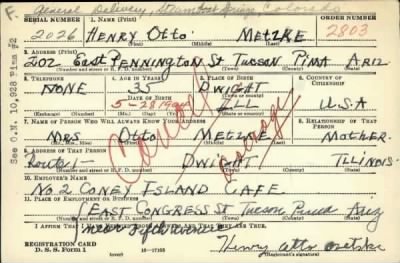 F- General Delivery, Steamboat Springs, Colorado
SERIAL NUMBER 1. NAME (Print) ORDER NUMBER
2026 HENRY Otto METZKE 2803
2. ADDRESS (Print)
202 East PENNINGTON St Tucson PIMA ARIZ
(Number and street or R. F. D. number) (Town) (County) (State)
3. TELEPHONE 4. AGE IN YEARS 5. PLACE OF BIRTH 6. COUNTRY OF CITIZENSHIP
NONE 35 DWIGHT
DATE OF BIRTH
5-28-19 ILL U.S.A
(Exchange) (Number) (Mo.) (Day) (Yr.) (State or country)
7. NAME OF PERSON WHO WILL ALWAYS KNOW YOUR ADDRESS 8. RELATIONSHIP OF THAT PERSON
MRS Otto METZKE MOTHER
(Mr., Mrs., Miss) (First) (Middle) (Last)
9. ADDRESS OF THAT PERSON
Route 1- DWIGHT ILLINOIS
(Number and street or R. F. D. number) (Town) (County) (State)
10. EMPLOYER'S NAME
NO. 2 CONEY ISLAND CAFE
11. PLACE OF EMPLOYMENT OR BUSINESS
EAST CONGRESS St Tucson Pima Ariz
(Number and street or R. F. D. number) (Town) (County) (State)
I AFFIRM THAT I HAVE VERIFIED ABOVE ANSWERS AND THAT THEY ARE TRUE.
REGISTRATION CARD
D. S. S. Form 1 (over) 16-17105
Henry Otto Metzke
(Registrant's signature)
See O.N. 10,928 Pima #2
Cancel